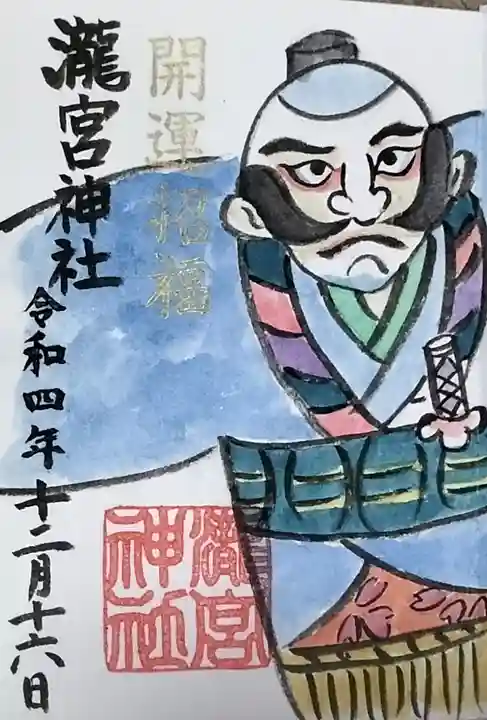 開運招福
瀧宮神社
令和四年十二月十六日
瀧宮
神社